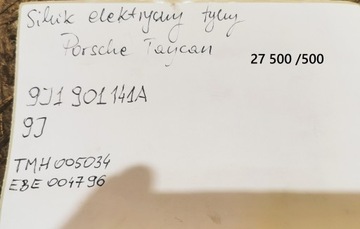 Silnik elektryczny tylny
Porsche Taycan
27 500 /500
9J1 901 141A
9J
TMH 005034
EBE 004796